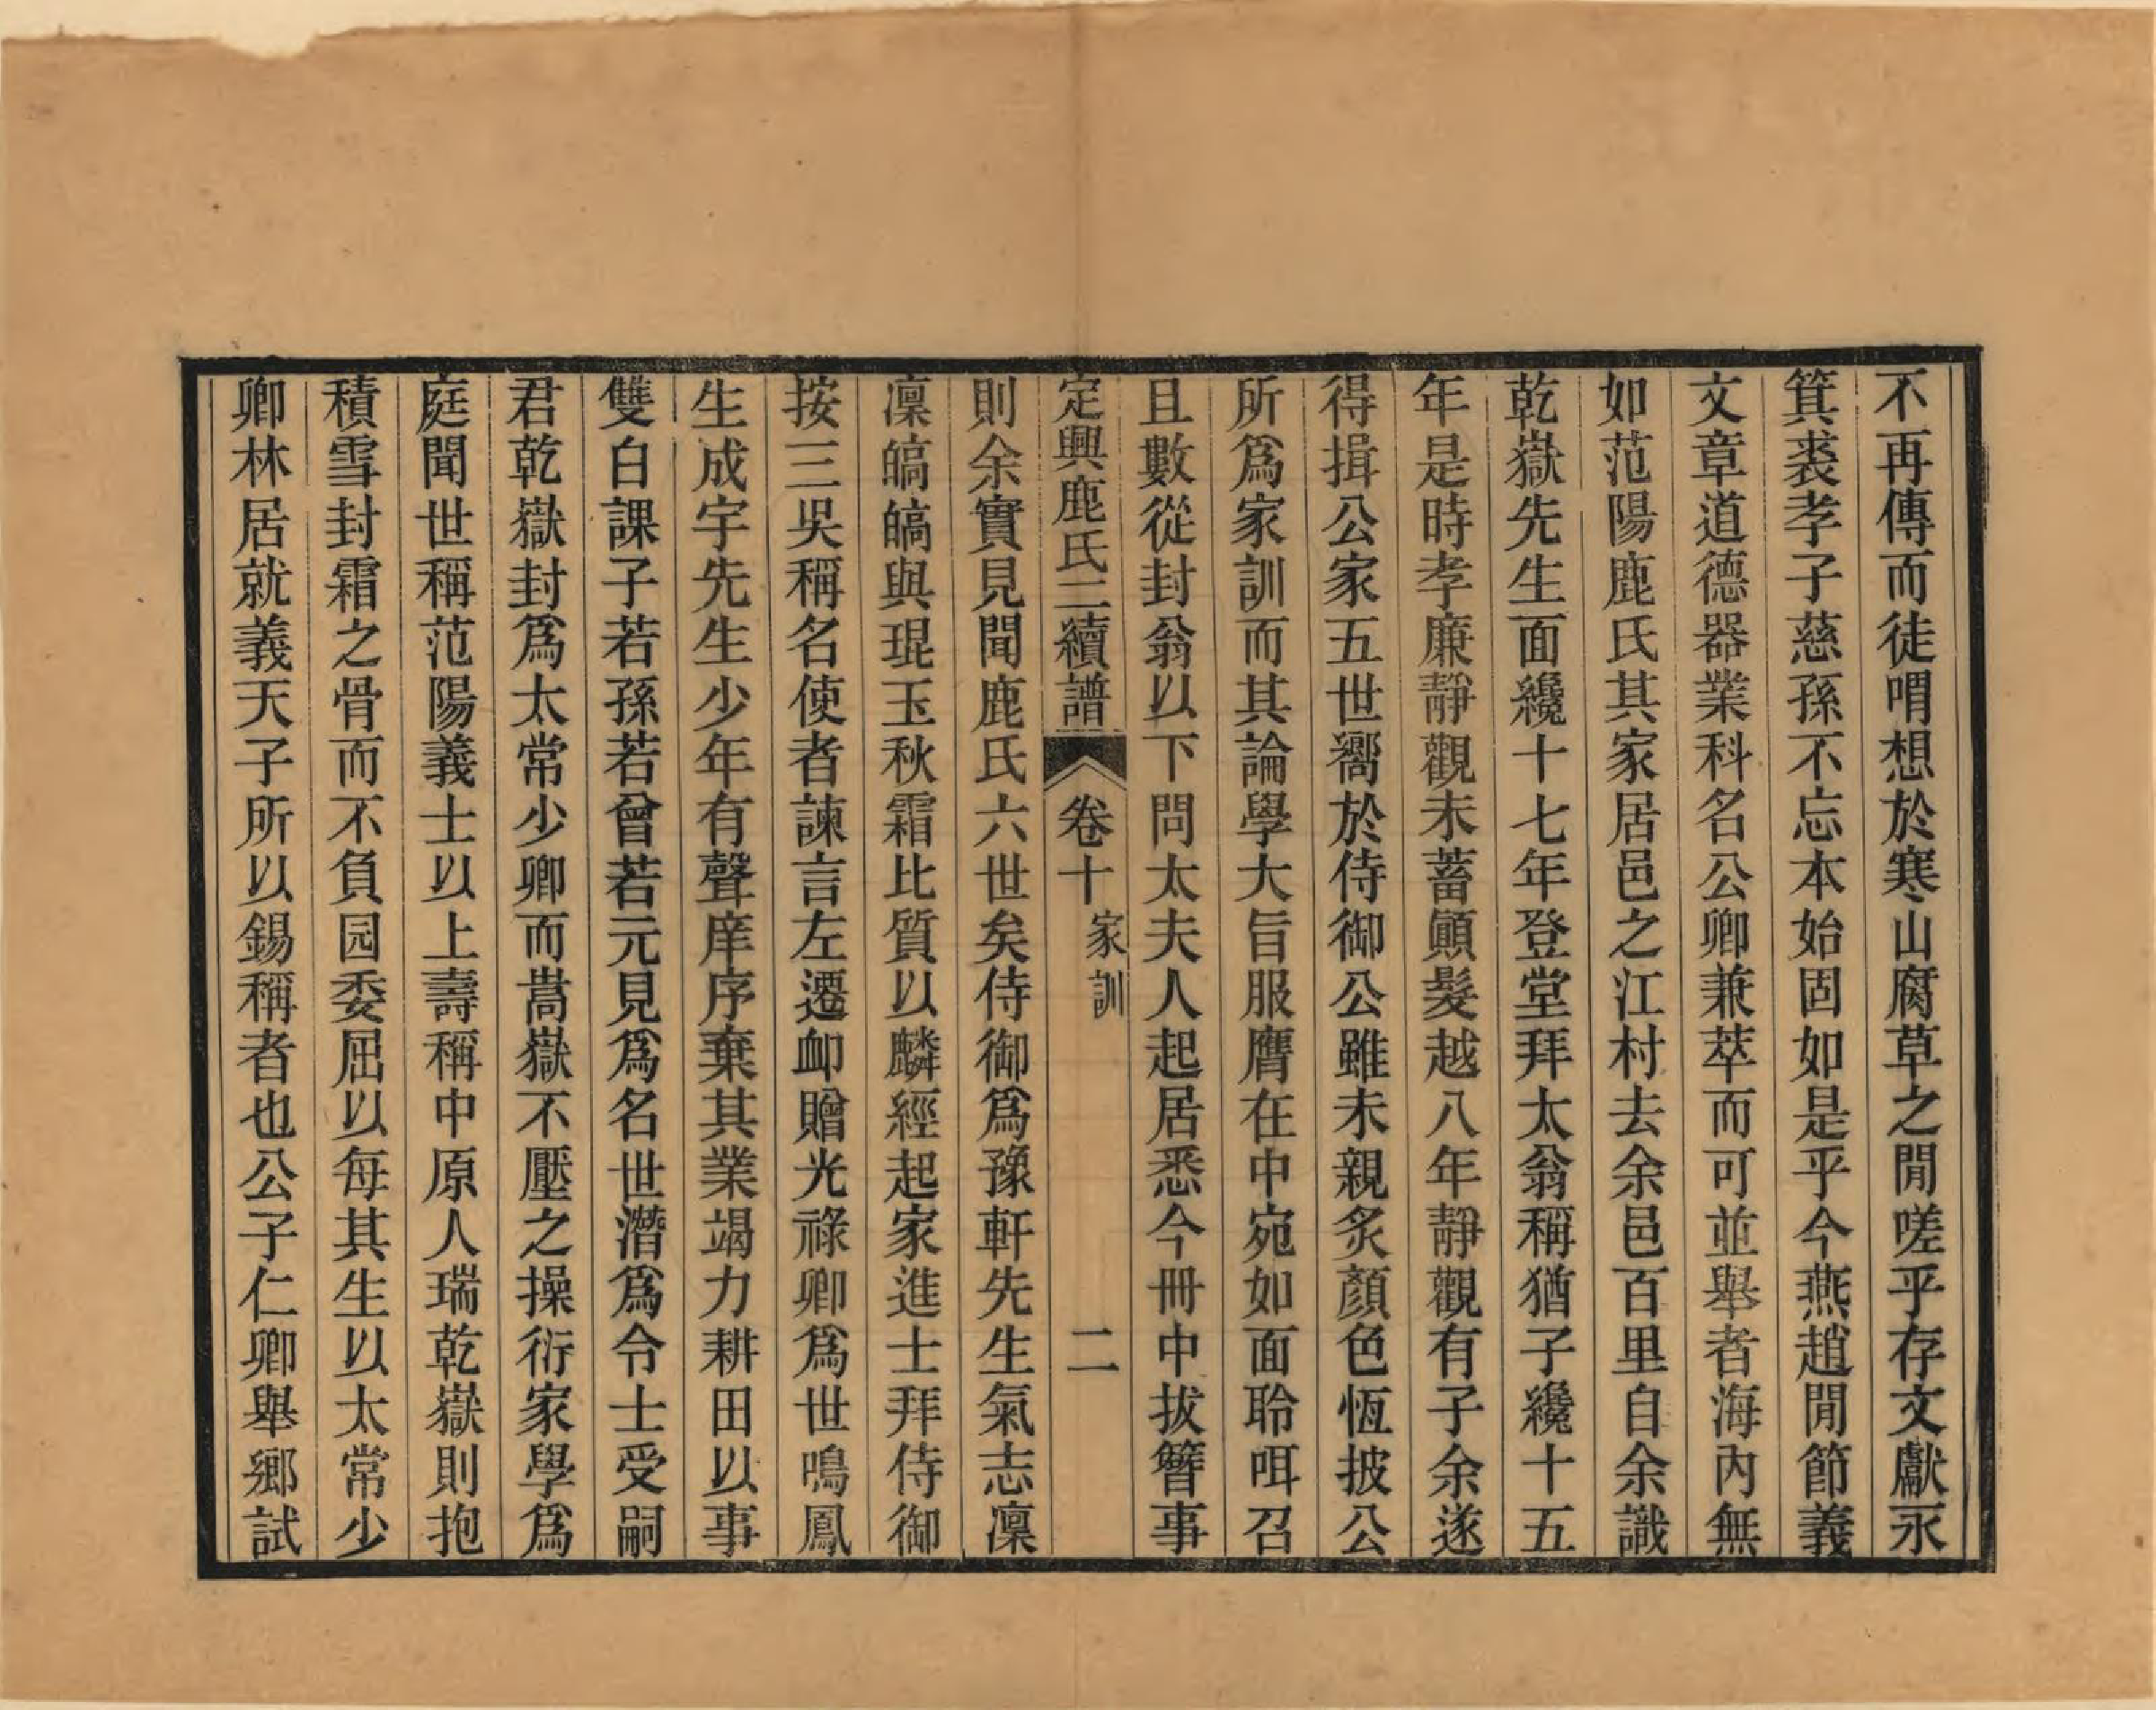 不再傳而徒喟想於寒山腐草之閒嗟乎存文獻永
箕裘孝子慈孫不忘本始固如是乎今燕趙閒節義
文章道德器業科名公卿兼萃而可並舉者海內無
如范陽鹿氏其家居邑之江村去余邑百里自余識
乾嶽先生面纔十七年登堂拜太翁稱猶子纔十五
年是時孝廉靜觀未蓄顖髮越八年靜觀有子余遂
得揖公家五世嚮於侍御公雖未親炙顏色恆披公
所爲家訓而其論學大旨服膺在中宛如面聆咡召
且數從封翁以下問太夫人起居悉今冊中拔簪事
定興鹿氏二續譜 卷十 家訓 二
則余實見聞鹿氏六世矣侍御爲豫軒先生氣志凜
凜皜皜與琨玉秋霜比質以麟經起家進士拜侍御
按三吳稱名使者諫言左遷卹贈光祿卿爲世鳴鳳
生成宇先生少年有聲庠序棄其業竭力耕田以事
雙白課子若孫若曾若元見爲名世潛爲令士受嗣
君乾嶽封爲太常少卿而嵩嶽不壓之操衍家學爲
庭聞世稱范陽義士以上壽稱中原人瑞乾嶽則抱
積雪封霜之骨而不負园委屈以每其生以太常少
卿林居就義天子所以錫稱者也公子仁卿舉鄉試